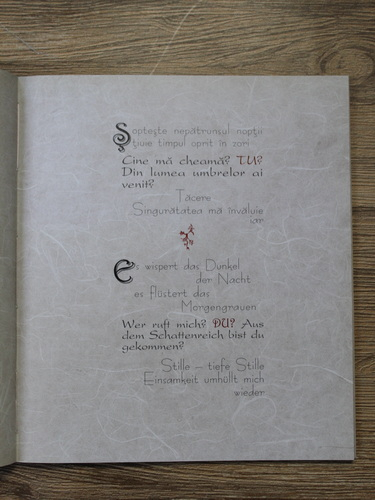 Șoptește nepătrunsul nopții
țiuie timpul oprit în zori
Cine mă cheamă? TU?
Din lumea umbrelor ai
venit?
Tăcere
Singurătatea mă învăluie
iar
Es wispert das Dunkel
der Nacht
es flüstert das
Morgengrauen
Wer ruft mich? DU? Aus
dem Schattenreich bist du
gekommen?
Stille – tiefe Stille
Einsamkeit umhüllt mich
wieder